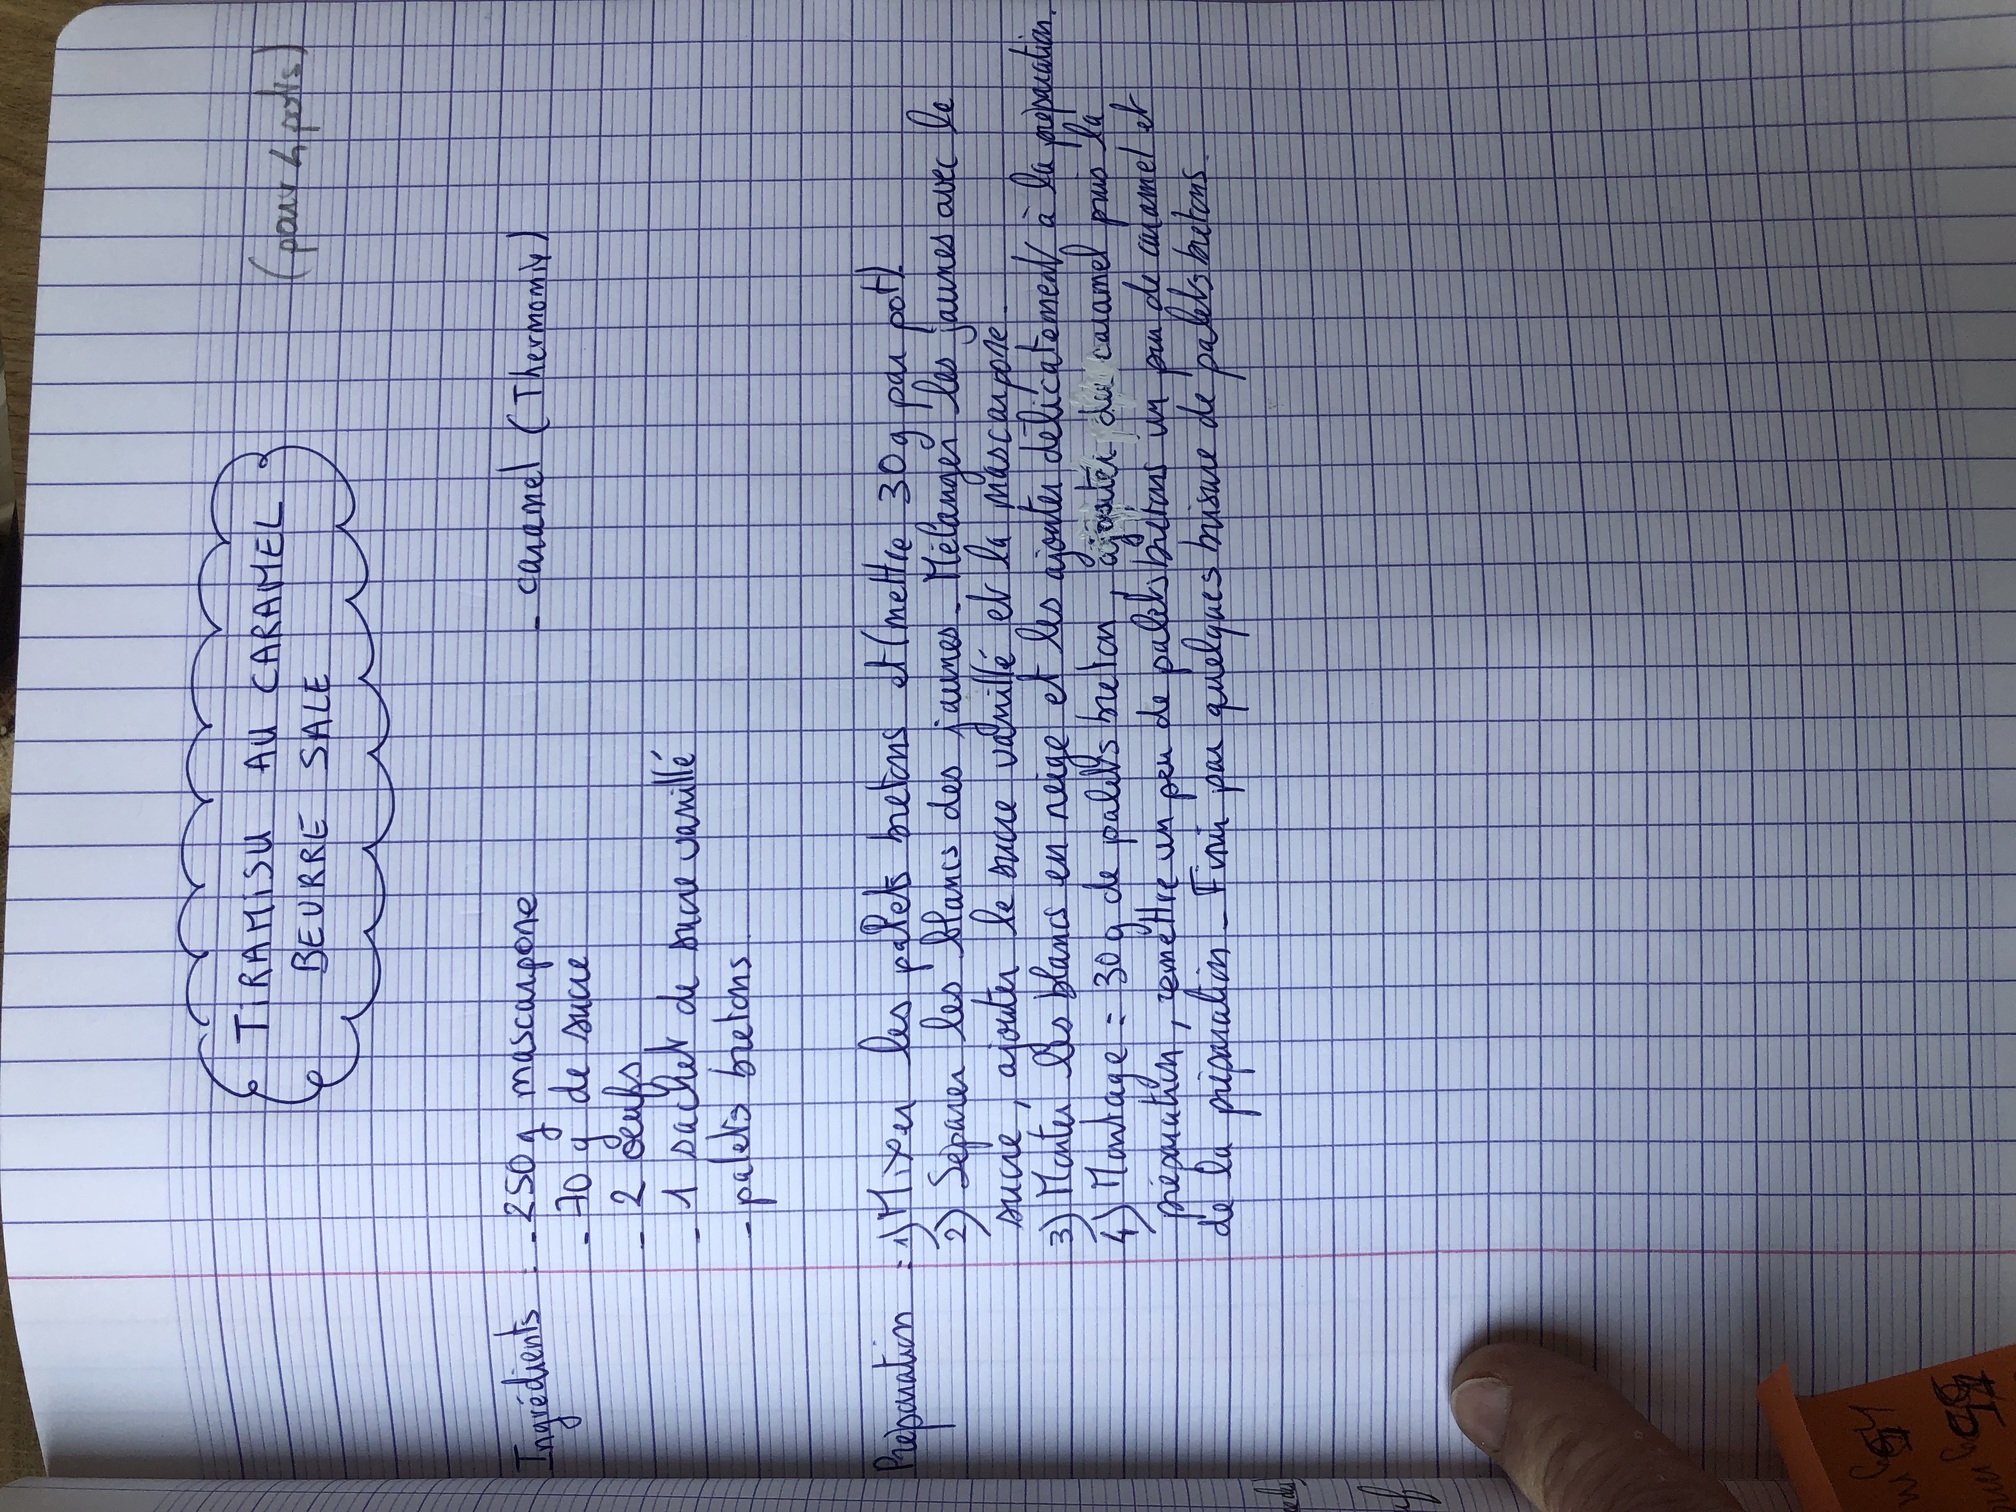 (pour 4 pots)
TIRAMISU AU CARAMEL
BEURRE SALE
Ingrédients : - 250 g mascarpone - caramel (Thermomix)
- 70 g de sucre
- 2 oeufs
- 1 sachet de sucre vanillé
- palets bretons
Préparation : 1) Mixer les palets bretons et (mettre 30 g par pot)
2) Séparer les blancs des jaunes - Mélanger les jaunes avec le
sucre, ajouter le sucre vanillé et la mascarpone.
3) Monter les blancs en neige et les ajouter délicatement à la préparation.
4) Montage = 30 g de palets breton, ajouter du caramel puis la
préparation, remettre un peu de palets bretons un peu de caramel et
de la préparation - Finir par quelques brisure de palets bretons.